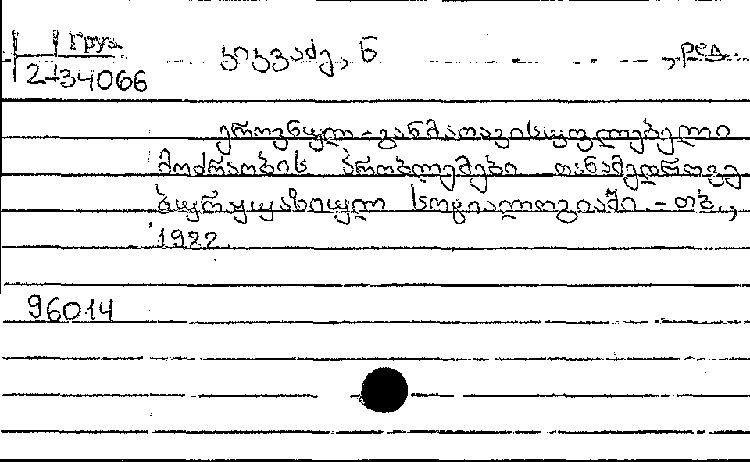 Груз. კიკვაძე, ნ , ред.
2-34066
ეროვნულ-განმათავისუფლებელი
მოძრაობის პრობლემები თანამედროვე
ბურჟუაზიულ სოციალოგიაში. - თბ.,
1922.
96014